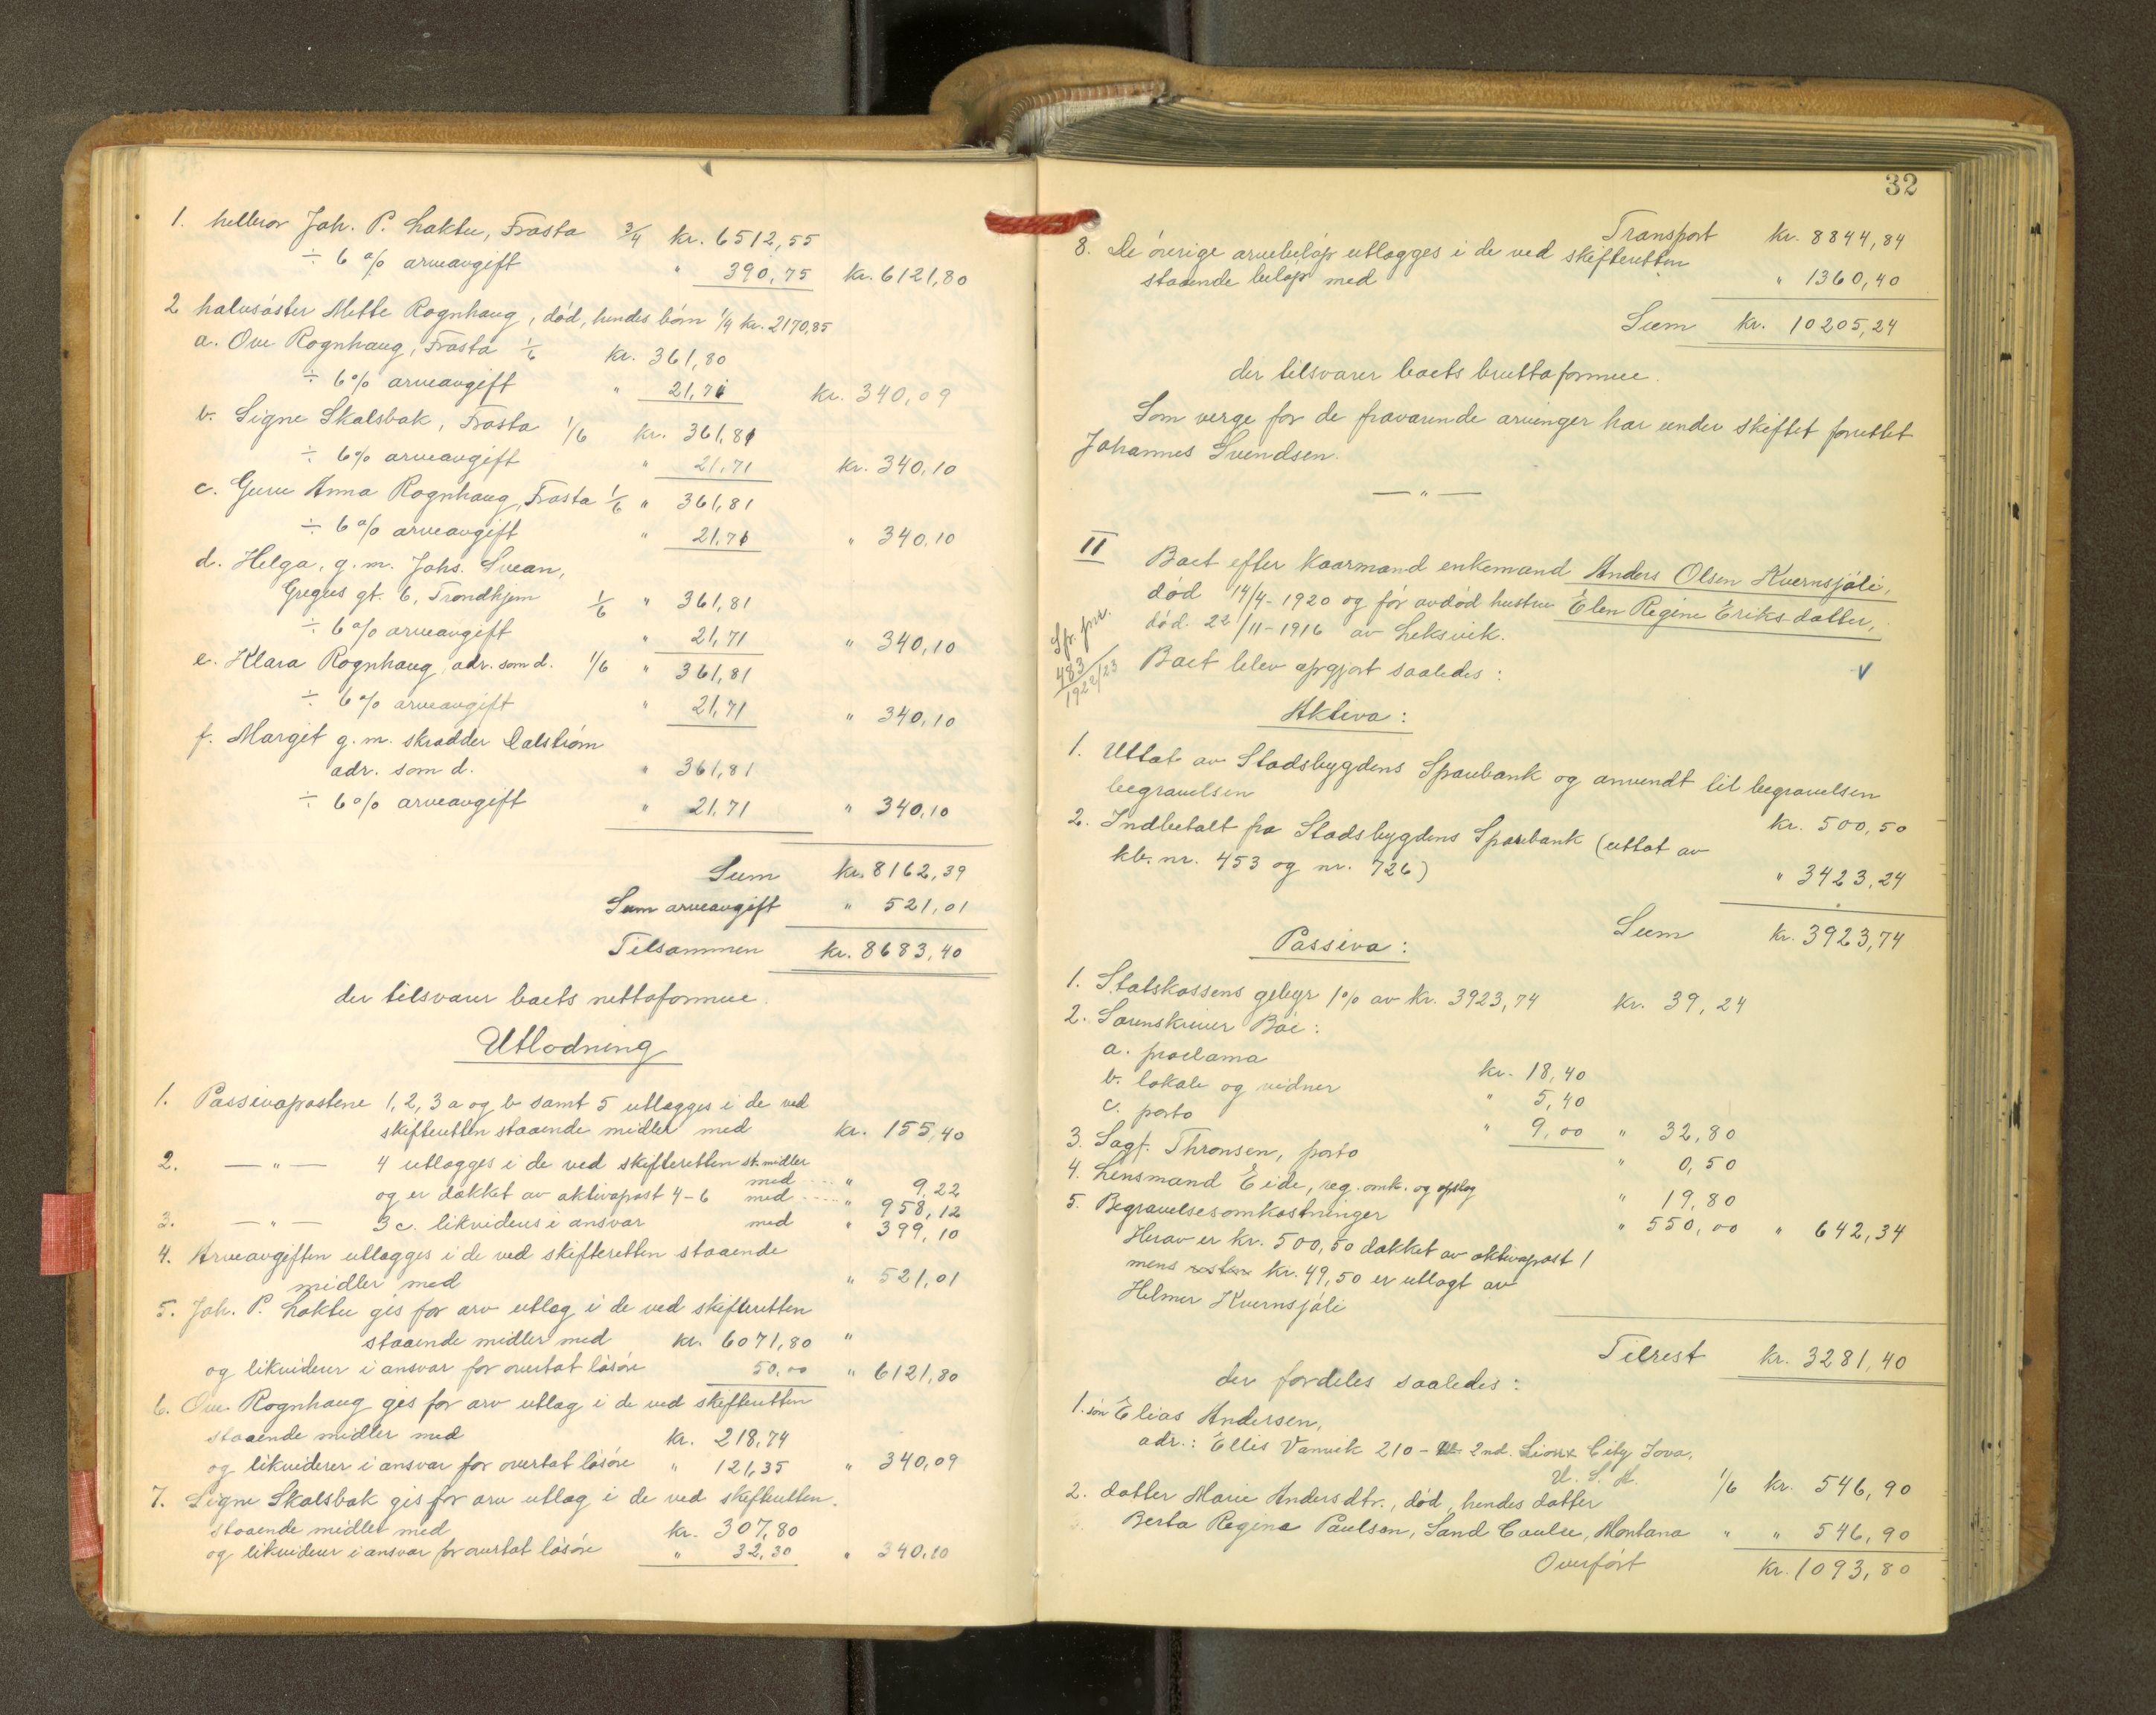 1. helbror Joh. P. Loktu, Frosta 3/4 kr. 6512,55
÷ 6 % arveavgift " 390,75 kr. 6121,80
2 halvsøster Mette Rognhaug, død, hendes børn 1/4 kr. 2170,85
a. Ove Rognhaug, Frosta 1/6 kr. 361,80
÷ 6% arveavgift " 21,71 kr. 340,09
b. Signe Skalsbak, Frosta 1/6 kr. 361,81
÷ 6% arveavgift " 21,71 kr. 340,10
c. Guru Anna Rognhaug, Frosta 1/6 " 361,81
÷ 6% arveavgift " 21,71 " 340,10
d. Helga, g.m. Johs. Svean,
Gregus gt. 6, Trondhjem 1/6 " 361,81
÷ 6% arveavgift " 21,71 " 340,10
e. Klara Rognhaug, adr. som d. 1/6 " 361,81
÷ 6% arveavgift " 21,71 " 340,10
f. Margit g.m. skrædder Dalstrøm
adr. som d. " 361,81
÷ 6% arveavgift " 21,71 " 340,10
Sum kr. 8162,39
Sum arveavgift " 521,01
Tilsammen kr. 8683,40
der tilsvarer boets nettoformue.
Utlodning
1. Passivapostene 1, 2, 3 a og b samt 5 utlægges i de ved
skifteretten staaende midler med kr. 155,40
2. — " — 4 utlægges i de ved skifteretten st. midler
med " 9,22
og er dækket av aktivapost 4-6 med " 958,12
3. — " — 3 c. likvideres i ansvar med " 399,10
4. Arveavgiften utlægges i de ved skifteretten staaende
midler med " 521,01
5. Joh. P. Loktu gis for arv utlæg i de ved skifteretten
staaende midler med kr. 6071,80 "
og likviderer i ansvar for overtat løsøre 50,00 " 6121,80
6. Ove Rognhaug gis for arv utlæg i de ved skifteretten
staaende midler med kr. 218,74
og likviderer i ansvar for overtat løsøre " 121,35 " 340,09
7. Signe Skalsbak gis for arv utlæg i de ved skifteretten
staaende midler med kr. 307,80
og likviderer i ansvar for overtat løsøre " 32,30 " 340,10
32
Transport kr. 8844,84
8. De øvrige arvebeløp utlægges i de ved skifteretten
staaende beløp med " 1360,40
Sum kr. 10205,24
der tilsvarer boets bruttoformue.
Som verge for de fraværende arvinger har under skiftet forrettet
Johannes Svendsen.
— " —
II Boet efter kaarmand enkemand Anders Olsen Kvernsjøli,
død 14/4-1920 og før avdød hustru Elen Regine Eriksdatter,
død 22/11-1916 av Leksvik.
Sp. pr. 483/1922/23
Boet blev opgjort saaledes: √
Aktiva:
1. Uttat av Stadsbygdens Sparebank og anvendt til begravelsen
begravelsen kr. 500,50
2. Indbetalt fra Stadsbygdens Sparebank (uttat av
kb. nr. 453 og nr. 726) " 3423,24
Sum kr. 3923,74
Passiva:
1. Statskassens gebyr 1% av kr. 3923,74 kr. 39,24
2. Sorenskriver Bøe:
a. proclama kr. 18,40
b. lokale og vidner " 5,40
c. porto " 9,00 " 32,80
3. Sagf. Thronsen, porto " 0,50
4. Lensmand Eide, reg. omk. og opslag " 19,80
5. Begravelsesomkostninger " 550,00 " 642,34
Herav er kr. 500,50 dækket av aktivapost 1
mens resten kr. 49,50 er utlagt av
Helmer Kvernsjøli
Tilrest kr. 3281,40
der fordeles saaledes:
1. søn Elias Andersen,
adr.: Ellis Vanvik 210 - 2nd. Sioux City Iova,
U. S. A. 1/6 kr. 546,90
2. datter Marie Andersdtr., død, hendes datter
Berta Regina Paulson, Sand Coulee, Montana " " 546,90
Overført kr. 1093,80